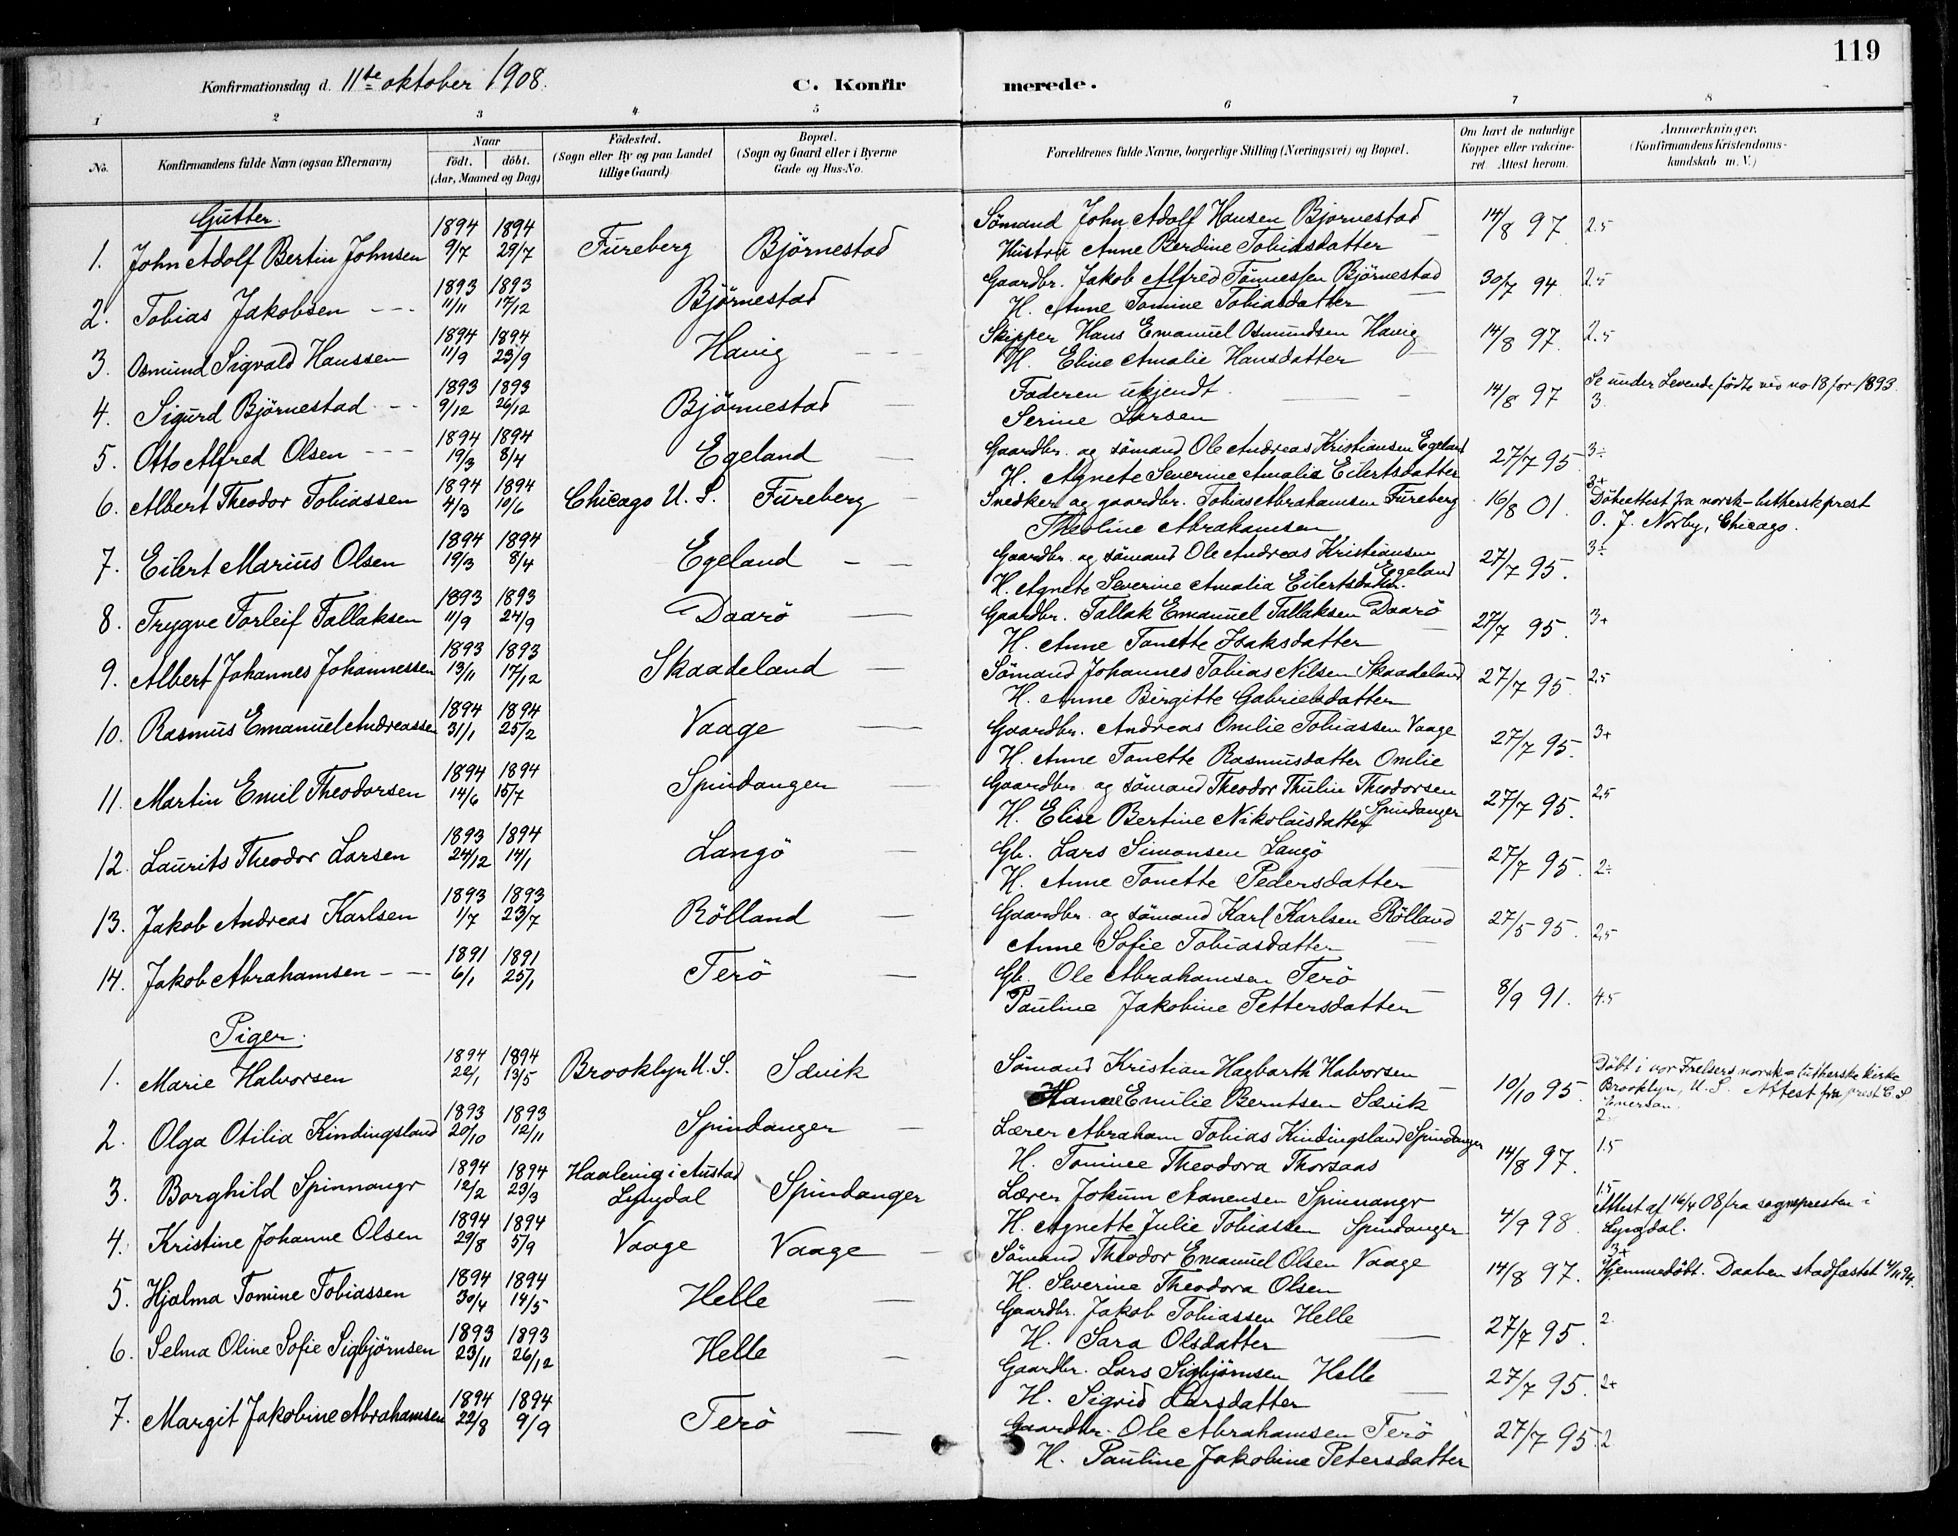 119
Konfirmationsdag d. 11te oktober 1908.
C. Konfirmerede.
1 2 3 4 5 6 7 8
No.
Konfirmandens fulde Navn (ogsaa Efternavn)
Naar
födt. döbt.
(Aar, Maaned og Dag)
Födested.
(Sogn eller By og paa Landet
tillige Gaard)
Bopæl.
(Sogn og Gaard eller i Byerne
Gade og Hus-No.
Forældrenes fulde Navne, borgerlige Stilling (Næringsvei) og Bopæl.
Om havt de naturlige
Kopper eller vakcine-
ret. Attest herom.
Anmærkninger.
(Konfirmandens Kristendoms-
kundskab m. V.)
Gutter.
1. John Adolf Bertin Johnsen 1894 9/7 1894 29/7 Füreberg Björnestad Sömand John Adolf Hansen Bjornestad 14/8 97. 2.5
Hustru Anne Berdine Tobiasdatter
2. Tobias Jakobsen - - - 1893 11/11 1893 17/12 Björnestad Gaardbr. Jakob Alfred Tönnessen Björnestad 30/7 94. 2.5
H. Anne Tomine Tobiasdatter
3. Osmund Sigvald Hanssen 1894 11/9 1894 23/9 Havig Skipper Hans Emanuel Osmundsen Havig 14/8 97. 2.5
H. Eline Amalie Hansdatter
4. Sigurd Björnestad 1893 9/12 1893 26/12 Björnestad Faderen ukjendt. 14/8 97 Se under Levende födte ved no 18 for 1893.
Serine Larsen 3.
5. Otto Alfred Olsen - - - 1894 19/3 1894 8/4 Egeland Gaardbr. og sömand Ole Andreas Kristiansen Egeland 27/7 95. 3÷
H. Agnete Severine Amalia Eilertsdatter
6. Albert Theodor Tobiassen 1894 4/3 1894 10/6 Chicago U. S. Füreberg Snedker og gaardbr. Tobias Abrahamsen Füreberg 16/8 01. 3+ Döbeattest fra norsk-luthersk prest
Theoline Abrahamsen O. J. Norby, Chicago.
7. Eilert Marius Olsen 1894 19/3 1894 8/4 Egeland Gaardbr. og sömand Ole Andreas Kristiansen Egeland 27/7 95. 3÷
H. Agnete Severine Amalia Eilertsdatter.
8. Trygve Torleif Tallaksen 1893 11/9 1893 24/9 Daarö Gaardbr. Tallak Emanuel Tallaksen Daarö 27/7 95. 3+
H. Anne Tonette Isaksdatter
9. Albert Johannes Johannessen 1893 13/11 1893 17/12 Skaadeland Sömand Johannes Tobias Nilsen Skaadeland 27/7 95. 2,5
H. Anne Birgitte Gabrielsdatter
10. Rasmus Emanuel Andreassen 1894 31/1 1894 25/2 Vaage Gaardbr. Andreas Omlie Tobiassen Vaage 27/7 95. 3+
H. Anne Tonette Rasmusdatter Omlie
11. Martin Emil Theodorsen 1894 14/6 1894 15/7 Spindangen Gaardbr. og sömand Theodor Thulin Theodorsen 27/7 95. 2,5
H. Elise Bertine Nikolaisdatter Spindanger
12. Laurits Theodor Larsen 1893 24/12 1894 14/1 Langö Gb. Lars Simonsen Langö 27/7 95. 2÷
H. Anne Tonette Pedersdatter
13. Jakob Andreas Karlsen 1893 1/7 1893 23/7 Rölland Gaardbr. og sömand Karl Karlsen Rölland 27/5 95. 2,5
Anne Sofie Tobiasdatter
14. Jakob Abrahamsen - - 1891 6/1 1891 25/1 Terö Gb. Ole Abrahamsen Terö 8/9 91. 4.5
Pauline Jakobine Pettersdatter
Piger.
1. Marie Halvorsen 1894 22/1 1894 13/5 Brooklyn U. S. Sævik Sömand Kristian Hagbarth Halvorsen 10/10 95. Döbt i vor Frelsers norsk-lutherske kirke
Emilie Berntsen Sævik Brooklyn, U. S. Attest fra prest C. S.
2.
2. Olga Otilia Kindingsland 1893 20/10 1893 12/11 Spindanger Lærer Abraham Tobias Kindingsland Spindanger 14/8 97. 1.5
H. Tominee Theodora Thorsaas
3. Borghild Spinnangr 1894 12/2 1894 23/3 Haalevig i Austad Lyngdal Spindanger Lærer Jokum Aanensen Spinnangr 4/9 98. 1.5 Attest af 16/4 08 fra sognepresten i
H. Agnette Julie Tobiassen Spindanger Lyngdal.
4. Kristine Johanne Olsen 1894 29/8 1894 5/9 Vaage Vaage Sömand Theodor Emanuel Olsen Vaage 14/8 97. 3+ Hjemmedöbt. Daaben stadfæstet
H. Severine Theodora Olsen
5. Hjalma Tomine Tobiassen 1894 30/4 1894 14/5 Helle Gaardbr. Jakob Tobiassen Helle 27/7 95. 2.
H. Sara Olsdatter
6. Selma Oline Sofie Sigbjörnsen 1893 23/11 1893 26/12 Helle Gaardbr. Lars Sigbjörnsen Helle 27/7 95. 2+
H. Sigrid Larsdatter
7. Margit Jakobine Abrahamsen 1894 22/8 1894 9/9 Terö Gaardbr. Ole Abrahamsen Terö 27/7 95. 2
H. Pauline Jakobine Petersdatter